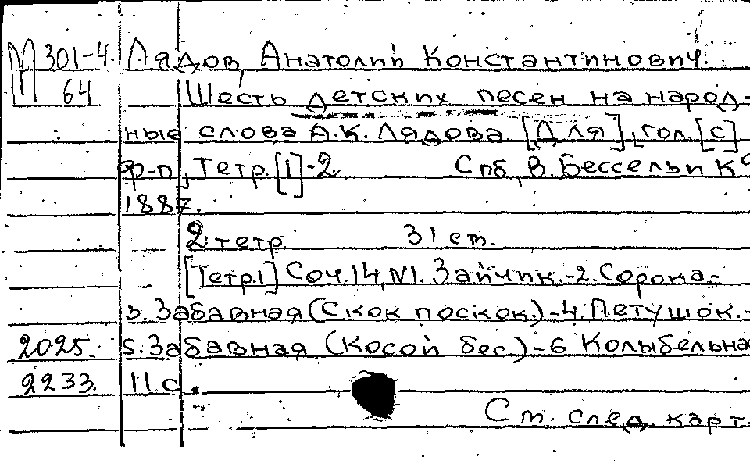 М 301-4. Лядов, Анатолий Константинович.
64 Шесть детских песен на народ-
ные слова А.К. Лядова. [Для] гол. [с]
ф-п, Тетр. [1]-2. Спб, В. Бессель и К°
1887.
2 тетр. 31 ст.
[Тетр.1] Соч. 14, N1. Зайчик.-2. Сорока.-
3. Забавная (Скок поскок)-4. Петушок.-
2025. 5. Забавная (Косой бес.)-6 Колыбельна
2233. 11с.
См. след. карт.